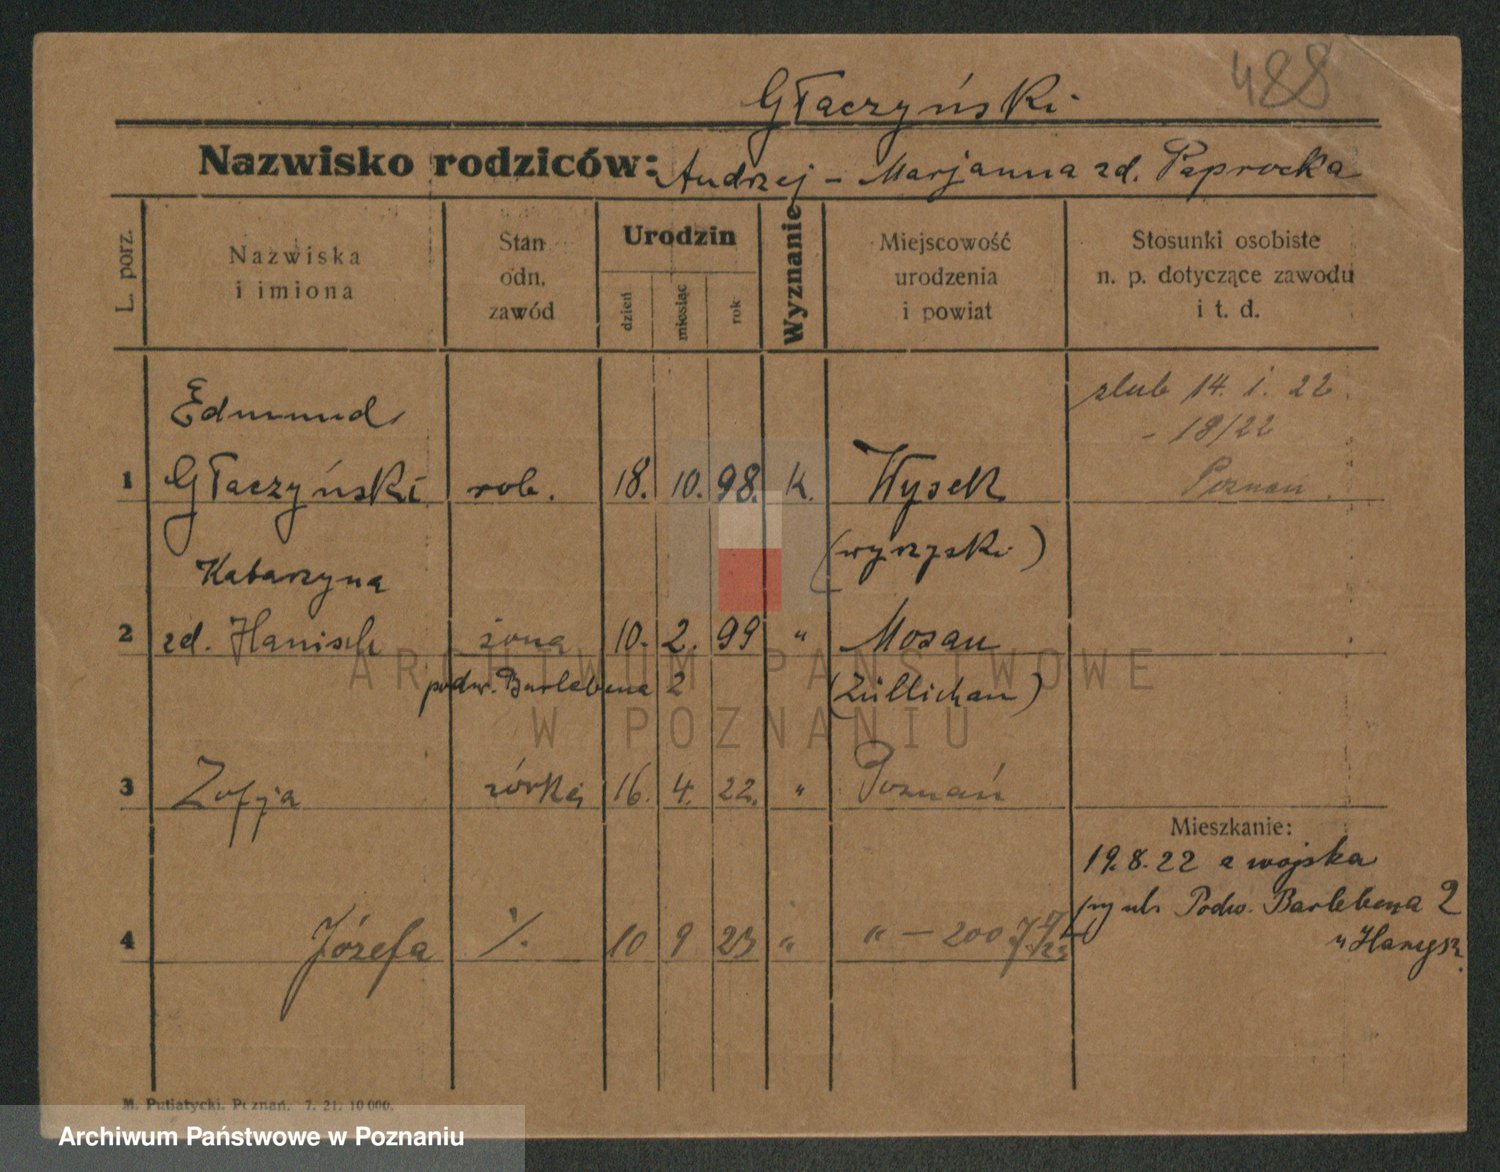 488
Głaczyński
Nazwisko rodziców: Andrzej – Marjanna zd. Paprocka
L. porz.
Nazwiska
i imiona
Stan
odn.
zawód
Urodzin
dzień
miesiąc
rok
Wyznanie
Miejscowość
urodzenia
i powiat
Stosunki osobiste
n. p. dotyczące zawodu
i t. d.
Edmund
1 Głaczyński rob. 18. 10. 98. k. Wysek
(wyrzyski)
ślub 14. 1. 22.
- 18/22
Poznań
Katarzyna
2 zd. Hanisch żona 10. 2. 99 " Mosau
podw. Barlebena 2 (Züllichau)
3 Zofja córka 16. 4. 22. " Poznań
4 Józefa % 10 9 23 " " — 200
Mieszkanie:
19.8.22 z wojska
Podw. Barlebena 2
u Hanysz.
M. Putiatycki. Poznań. 7. 21. 10 000.
ARCHIWUM PAŃSTWOWE
W POZNANIU
Archiwum Państwowe w Poznaniu